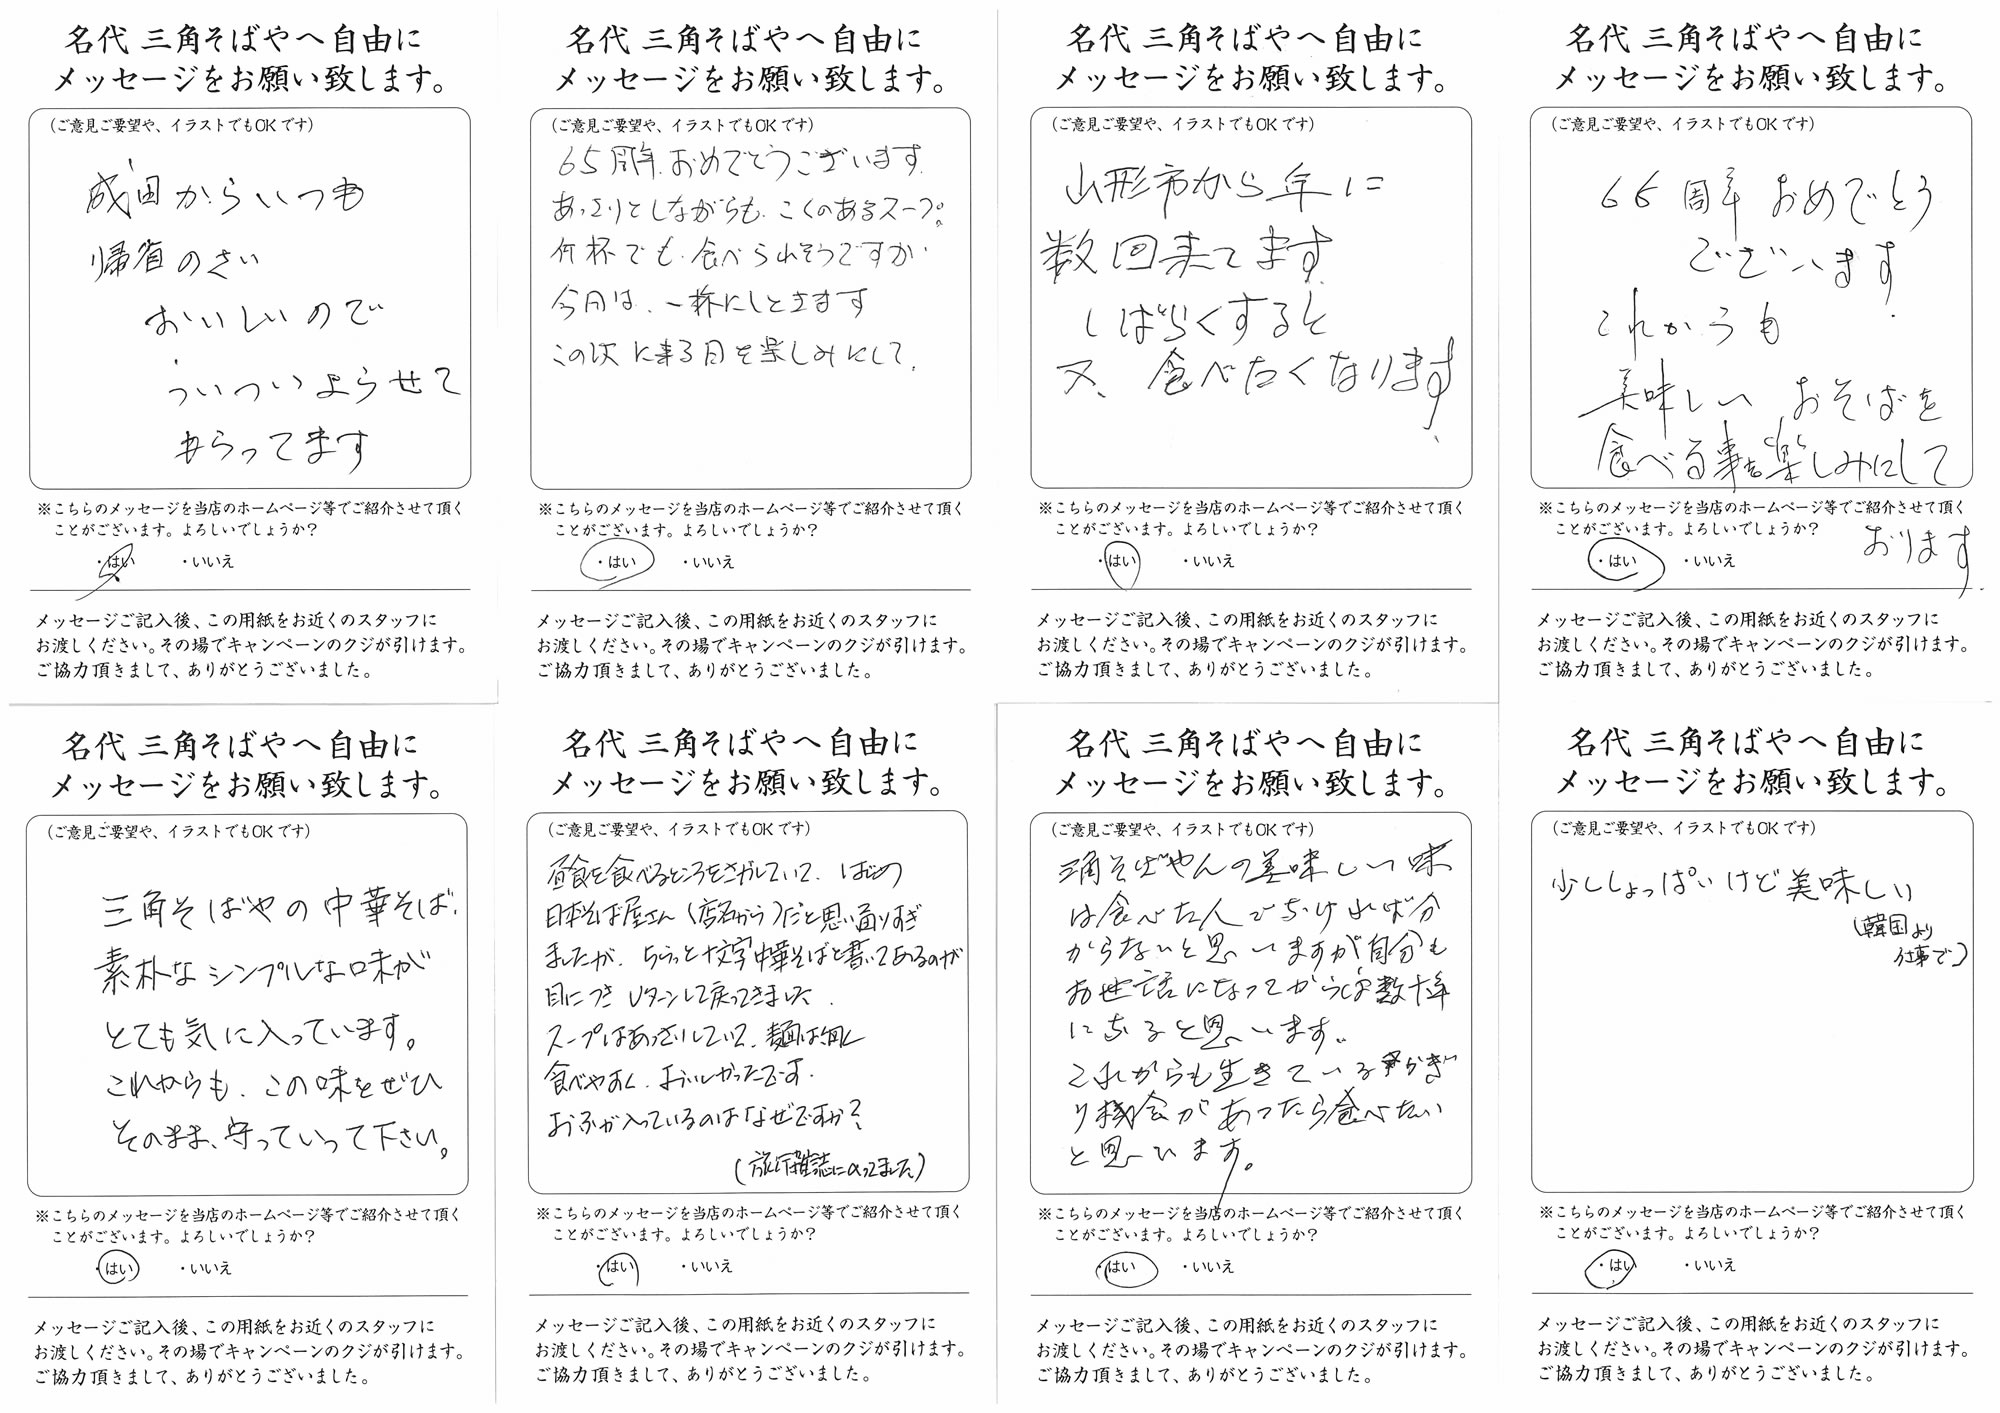 名代 三角そばやへ自由に
メッセージをお願い致します。
(ご意見ご要望や、イラストでもOKです)
成田からいつも
帰省のさい
おいしいので
ついついよらせて
もらってます
※こちらのメッセージを当店のホームページ等でご紹介させて頂く
ことがございます。よろしいでしょうか？
・はい ・いいえ
メッセージご記入後、この用紙をお近くのスタッフに
お渡しください。その場でキャンペーンのクジが引けます。
ご協力頂きまして、ありがとうございました。
名代 三角そばやへ自由に
メッセージをお願い致します。
(ご意見ご要望や、イラストでもOKです)
65周年、おめでとうございます
あっさりとしながらも、こくのあるスープ。
何杯でも、食べられそうですが
今日は、一杯にしときます
この次に来る日を楽しみにして、
※こちらのメッセージを当店のホームページ等でご紹介させて頂く
ことがございます。よろしいでしょうか？
・はい ・いいえ
メッセージご記入後、この用紙をお近くのスタッフに
お渡しください。その場でキャンペーンのクジが引けます。
ご協力頂きまして、ありがとうございました。
名代 三角そばやへ自由に
メッセージをお願い致します。
(ご意見ご要望や、イラストでもOKです)
山形市から年に
数回来てます
しばらくすると
又、食べたくなります
※こちらのメッセージを当店のホームページ等でご紹介させて頂く
ことがございます。よろしいでしょうか？
・はい ・いいえ
メッセージご記入後、この用紙をお近くのスタッフに
お渡しください。その場でキャンペーンのクジが引けます。
ご協力頂きまして、ありがとうございました。
名代 三角そばやへ自由に
メッセージをお願い致します。
(ご意見ご要望や、イラストでもOKです)
66周年おめでとう
ございます
これからも
美味しい おそばを
食べる事を楽しみにして
おります
※こちらのメッセージを当店のホームページ等でご紹介させて頂く
ことがございます。よろしいでしょうか？
・はい ・いいえ
メッセージご記入後、この用紙をお近くのスタッフに
お渡しください。その場でキャンペーンのクジが引けます。
ご協力頂きまして、ありがとうございました。
名代 三角そばやへ自由に
メッセージをお願い致します。
(ご意見ご要望や、イラストでもOKです)
三角そばやの中華そば、
素朴なシンプルな味が
とても気に入っています。
これからも、この味をぜひ
そのまま、守っていって下さい。
※こちらのメッセージを当店のホームページ等でご紹介させて頂く
ことがございます。よろしいでしょうか？
・はい ・いいえ
メッセージご記入後、この用紙をお近くのスタッフに
お渡しください。その場でキャンペーンのクジが引けます。
ご協力頂きまして、ありがとうございました。
名代 三角そばやへ自由に
メッセージをお願い致します。
(ご意見ご要望や、イラストでもOKです)
昼食を食べるところをさがしていて、はじめ
日本そば屋さん(店名から)だと思い通りすぎ
ましたが、ちらっと十文字中華そばと書いてあるのが
目につきUターンして戻ってきました。
スープはあっさりしていて、麺は細く
食べやすく、おいしかったです。
おふが入っているのはなぜですか？
(旅行雑誌にのってました)
※こちらのメッセージを当店のホームページ等でご紹介させて頂く
ことがございます。よろしいでしょうか？
・はい ・いいえ
メッセージご記入後、この用紙をお近くのスタッフに
お渡しください。その場でキャンペーンのクジが引けます。
ご協力頂きまして、ありがとうございました。
名代 三角そばやへ自由に
メッセージをお願い致します。
(ご意見ご要望や、イラストでもOKです)
三角そばやんの美味しい味
は食べた人でなければ分
からないと思いますが自分も
お世話になってから数十年
になると思います。
これからも生きているかぎ
り機会があったら食べたい
と思います。
※こちらのメッセージを当店のホームページ等でご紹介させて頂く
ことがございます。よろしいでしょうか？
・はい ・いいえ
メッセージご記入後、この用紙をお近くのスタッフに
お渡しください。その場でキャンペーンのクジが引けます。
ご協力頂きまして、ありがとうございました。
名代 三角そばやへ自由に
メッセージをお願い致します。
(ご意見ご要望や、イラストでもOKです)
少ししょっぱいけど美味しい
(韓国より
仕事で)
※こちらのメッセージを当店のホームページ等でご紹介させて頂く
ことがございます。よろしいでしょうか？
・はい ・いいえ
メッセージご記入後、この用紙をお近くのスタッフに
お渡しください。その場でキャンペーンのクジが引けます。
ご協力頂きまして、ありがとうございました。